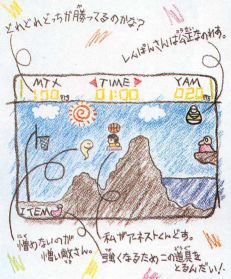 どれどれどっちが勝ってるのかな?
しんぱんさんは公正なのれす。
MTX
TIME
YAM
100
PTS
01:00
020
PTS
ITEM
憎めないのが
憎い敵さん。
私がアネストくんどす。
強くなるためこの道具を
とるんだい!